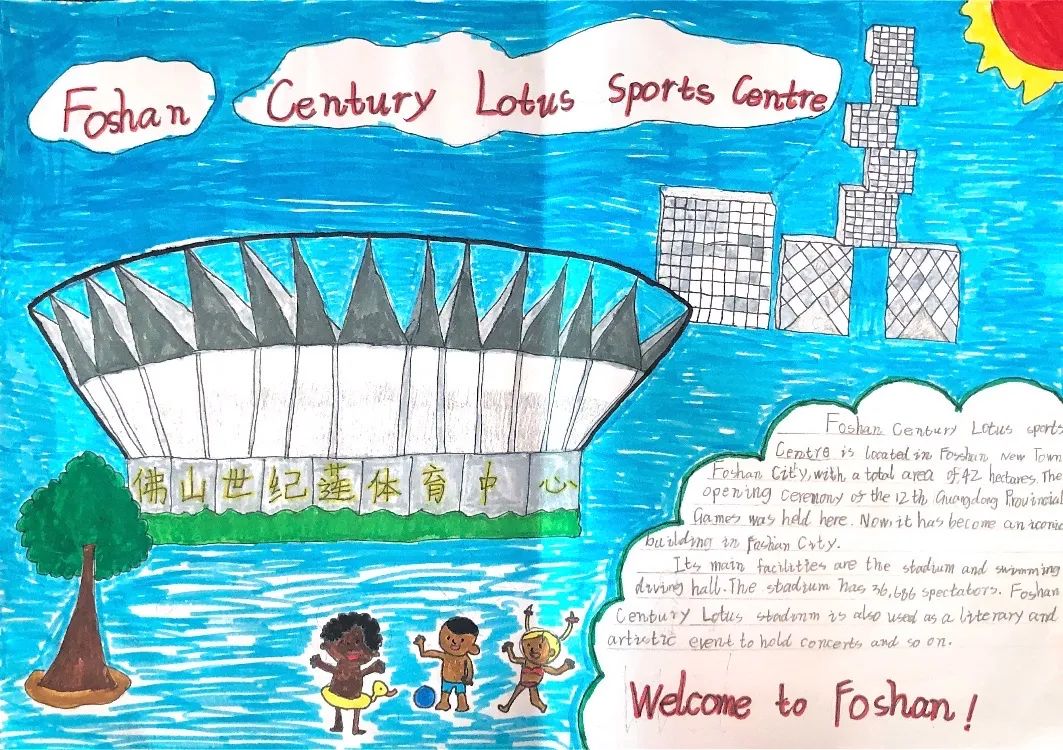 Foshan Century Lotus Sports Centre
佛山世纪莲体育中心
Foshan Century Lotus sports
Centre is located in Foshan New Town
Foshan City, with a total area of 42 hectares. The
opening ceremony of the 12th Guangdong Provincial
Games was held here. Now, it has become an iconic
building in Foshan City.
Its main facilities are the stadium and swimming
diving hall. The stadium has 36,686 spectators. Foshan
Century Lotus stadium is also used as a literary and
artistic event to hold concerts and so on.
Welcome to Foshan!